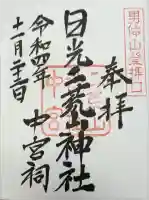 男体山登拝口
奉拝
日光二荒山神社
中宮祠
令和四年
十一月二十二日